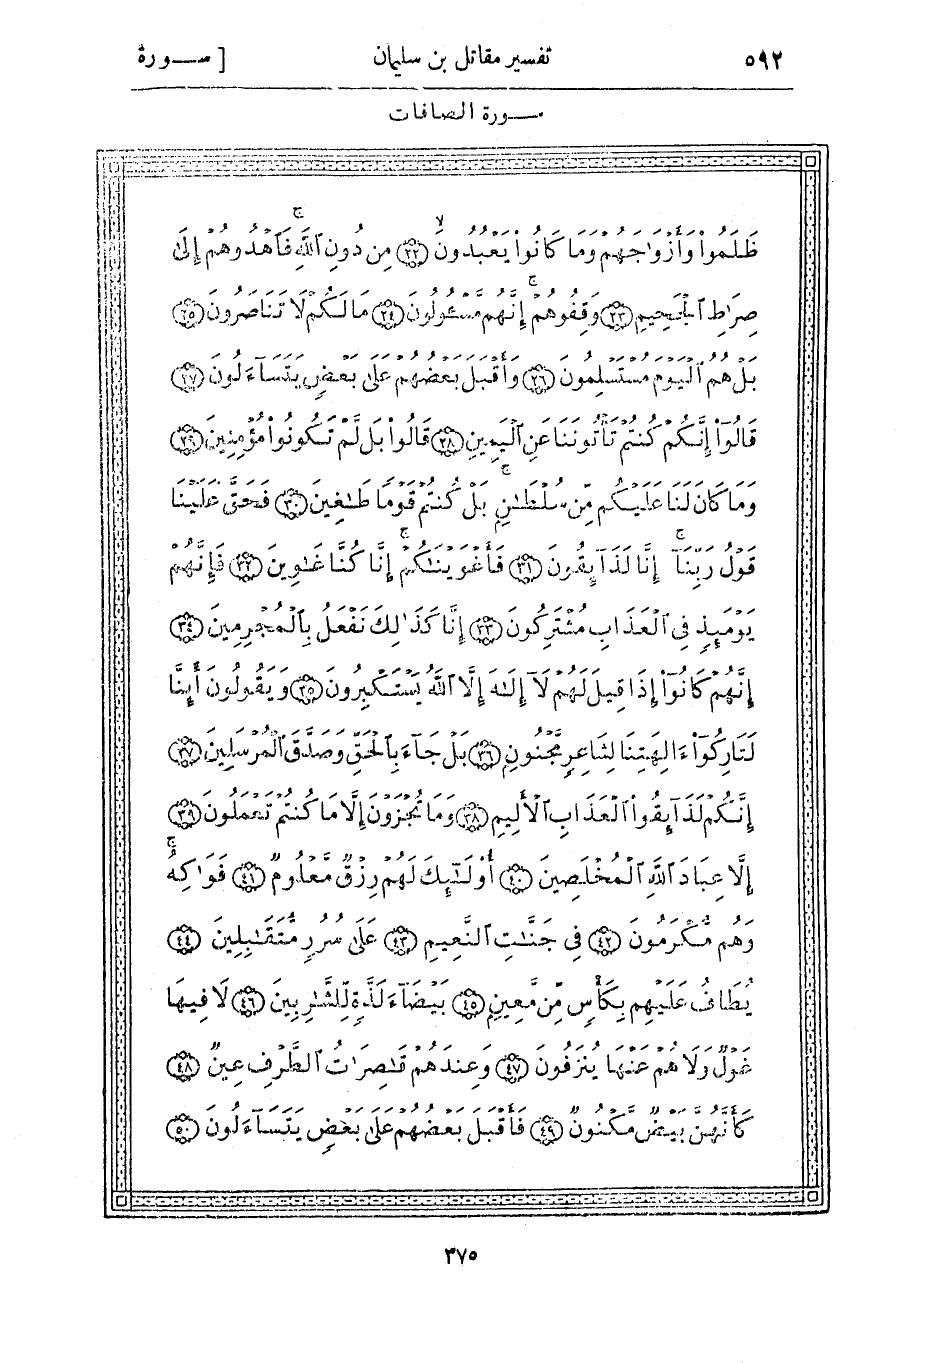 ٥٩٢ تفسير مقاتل بن سليمان [ سورة
سورة الصافات
ظَلَمُوا۟ وَأَزْوَٰجَهُمْ وَمَا كَانُوا۟ يَعْبُدُونَ ﴿٢٢﴾ مِن دُونِ ٱللَّهِ ۚ فَٱهْدُوهُمْ إِلَىٰ
صِرَٰطِ ٱلْجَحِيمِ ﴿٢٣﴾ وَقِفُوهُمْ ۚ إِنَّهُم مَّسْـُٔولُونَ ﴿٢٤﴾ مَا لَكُمْ لَا تَنَاصَرُونَ ﴿٢٥﴾
بَلْ هُمُ ٱلْيَوْمَ مُسْتَسْلِمُونَ ﴿٢٦﴾ وَأَقْبَلَ بَعْضُهُمْ عَلَىٰ بَعْضٍ يَتَسَآءَلُونَ ﴿٢٧﴾
قَالُوٓا۟ إِنَّكُمْ كُنتُمْ تَأْتُونَنَا عَنِ ٱلْيَمِينِ ﴿٢٨﴾ قَالُوا۟ بَل لَّمْ تَكُونُوا۟ مُؤْمِنِينَ ﴿٢٩﴾
وَمَا كَانَ لَنَا عَلَيْكُم مِّن سُلْطَـٰنٍۭ ۖ بَلْ كُنتُمْ قَوْمًا طَـٰغِينَ ﴿٣٠﴾ فَحَقَّ عَلَيْنَا
قَوْلُ رَبِّنَآ ۚ إِنَّا لَذَآئِقُونَ ﴿٣١﴾ فَأَغْوَيْنَـٰكُمْ ۚ إِنَّا كُنَّا غَـٰوِينَ ﴿٣٢﴾ فَإِنَّهُمْ
يَوْمَئِذٍ فِى ٱلْعَذَابِ مُشْتَرِكُونَ ﴿٣٣﴾ إِنَّا كَذَٰلِكَ نَفْعَلُ بِٱلْمُجْرِمِينَ ﴿٣٤﴾
إِنَّهُمْ كَانُوٓا۟ إِذَا قِيلَ لَهُمْ لَآ إِلَـٰهَ إِلَّا ٱللَّهُ يَسْتَكْبِرُونَ ﴿٣٥﴾ وَيَقُولُونَ أَئِنَّا
لَتَارِكُوٓا۟ ءَالِهَتِنَا لِشَاعِرٍ مَّجْنُونٍ ﴿٣٦﴾ بَلْ جَآءَ بِٱلْحَقِّ وَصَدَّقَ ٱلْمُرْسَلِينَ ﴿٣٧﴾
إِنَّكُمْ لَذَآئِقُوا۟ ٱلْعَذَابِ ٱلْأَلِيمِ ﴿٣٨﴾ وَمَا تُجْزَوْنَ إِلَّا مَا كُنتُمْ تَعْمَلُونَ ﴿٣٩﴾
إِلَّا عِبَادَ ٱللَّهِ ٱلْمُخْلَصِينَ ﴿٤٠﴾ أُو۟لَـٰٓئِكَ لَهُمْ رِزْقٌ مَّعْلُومٌ ﴿٤١﴾ فَوَٰكِهُ ۖ
وَهُم مُّكْرَمُونَ ﴿٤٢﴾ فِى جَنَّـٰتِ ٱلنَّعِيمِ ﴿٤٣﴾ عَلَىٰ سُرُرٍ مُّتَقَـٰبِلِينَ ﴿٤٤﴾
يُطَافُ عَلَيْهِم بِكَأْسٍ مِّن مَّعِينٍ ﴿٤٥﴾ بَيْضَآءَ لَذَّةٍ لِّلشَّـٰرِبِينَ ﴿٤٦﴾ لَا فِيهَا
غَوْلٌ وَلَا هُمْ عَنْهَا يُنزَفُونَ ﴿٤٧﴾ وَعِندَهُمْ قَـٰصِرَٰتُ ٱلطَّرْفِ عِينٌ ﴿٤٨﴾
كَأَنَّهُنَّ بَيْضٌ مَّكْنُونٌ ﴿٤٩﴾ فَأَقْبَلَ بَعْضُهُمْ عَلَىٰ بَعْضٍ يَتَسَآءَلُونَ ﴿٥٠﴾
٣٧٥